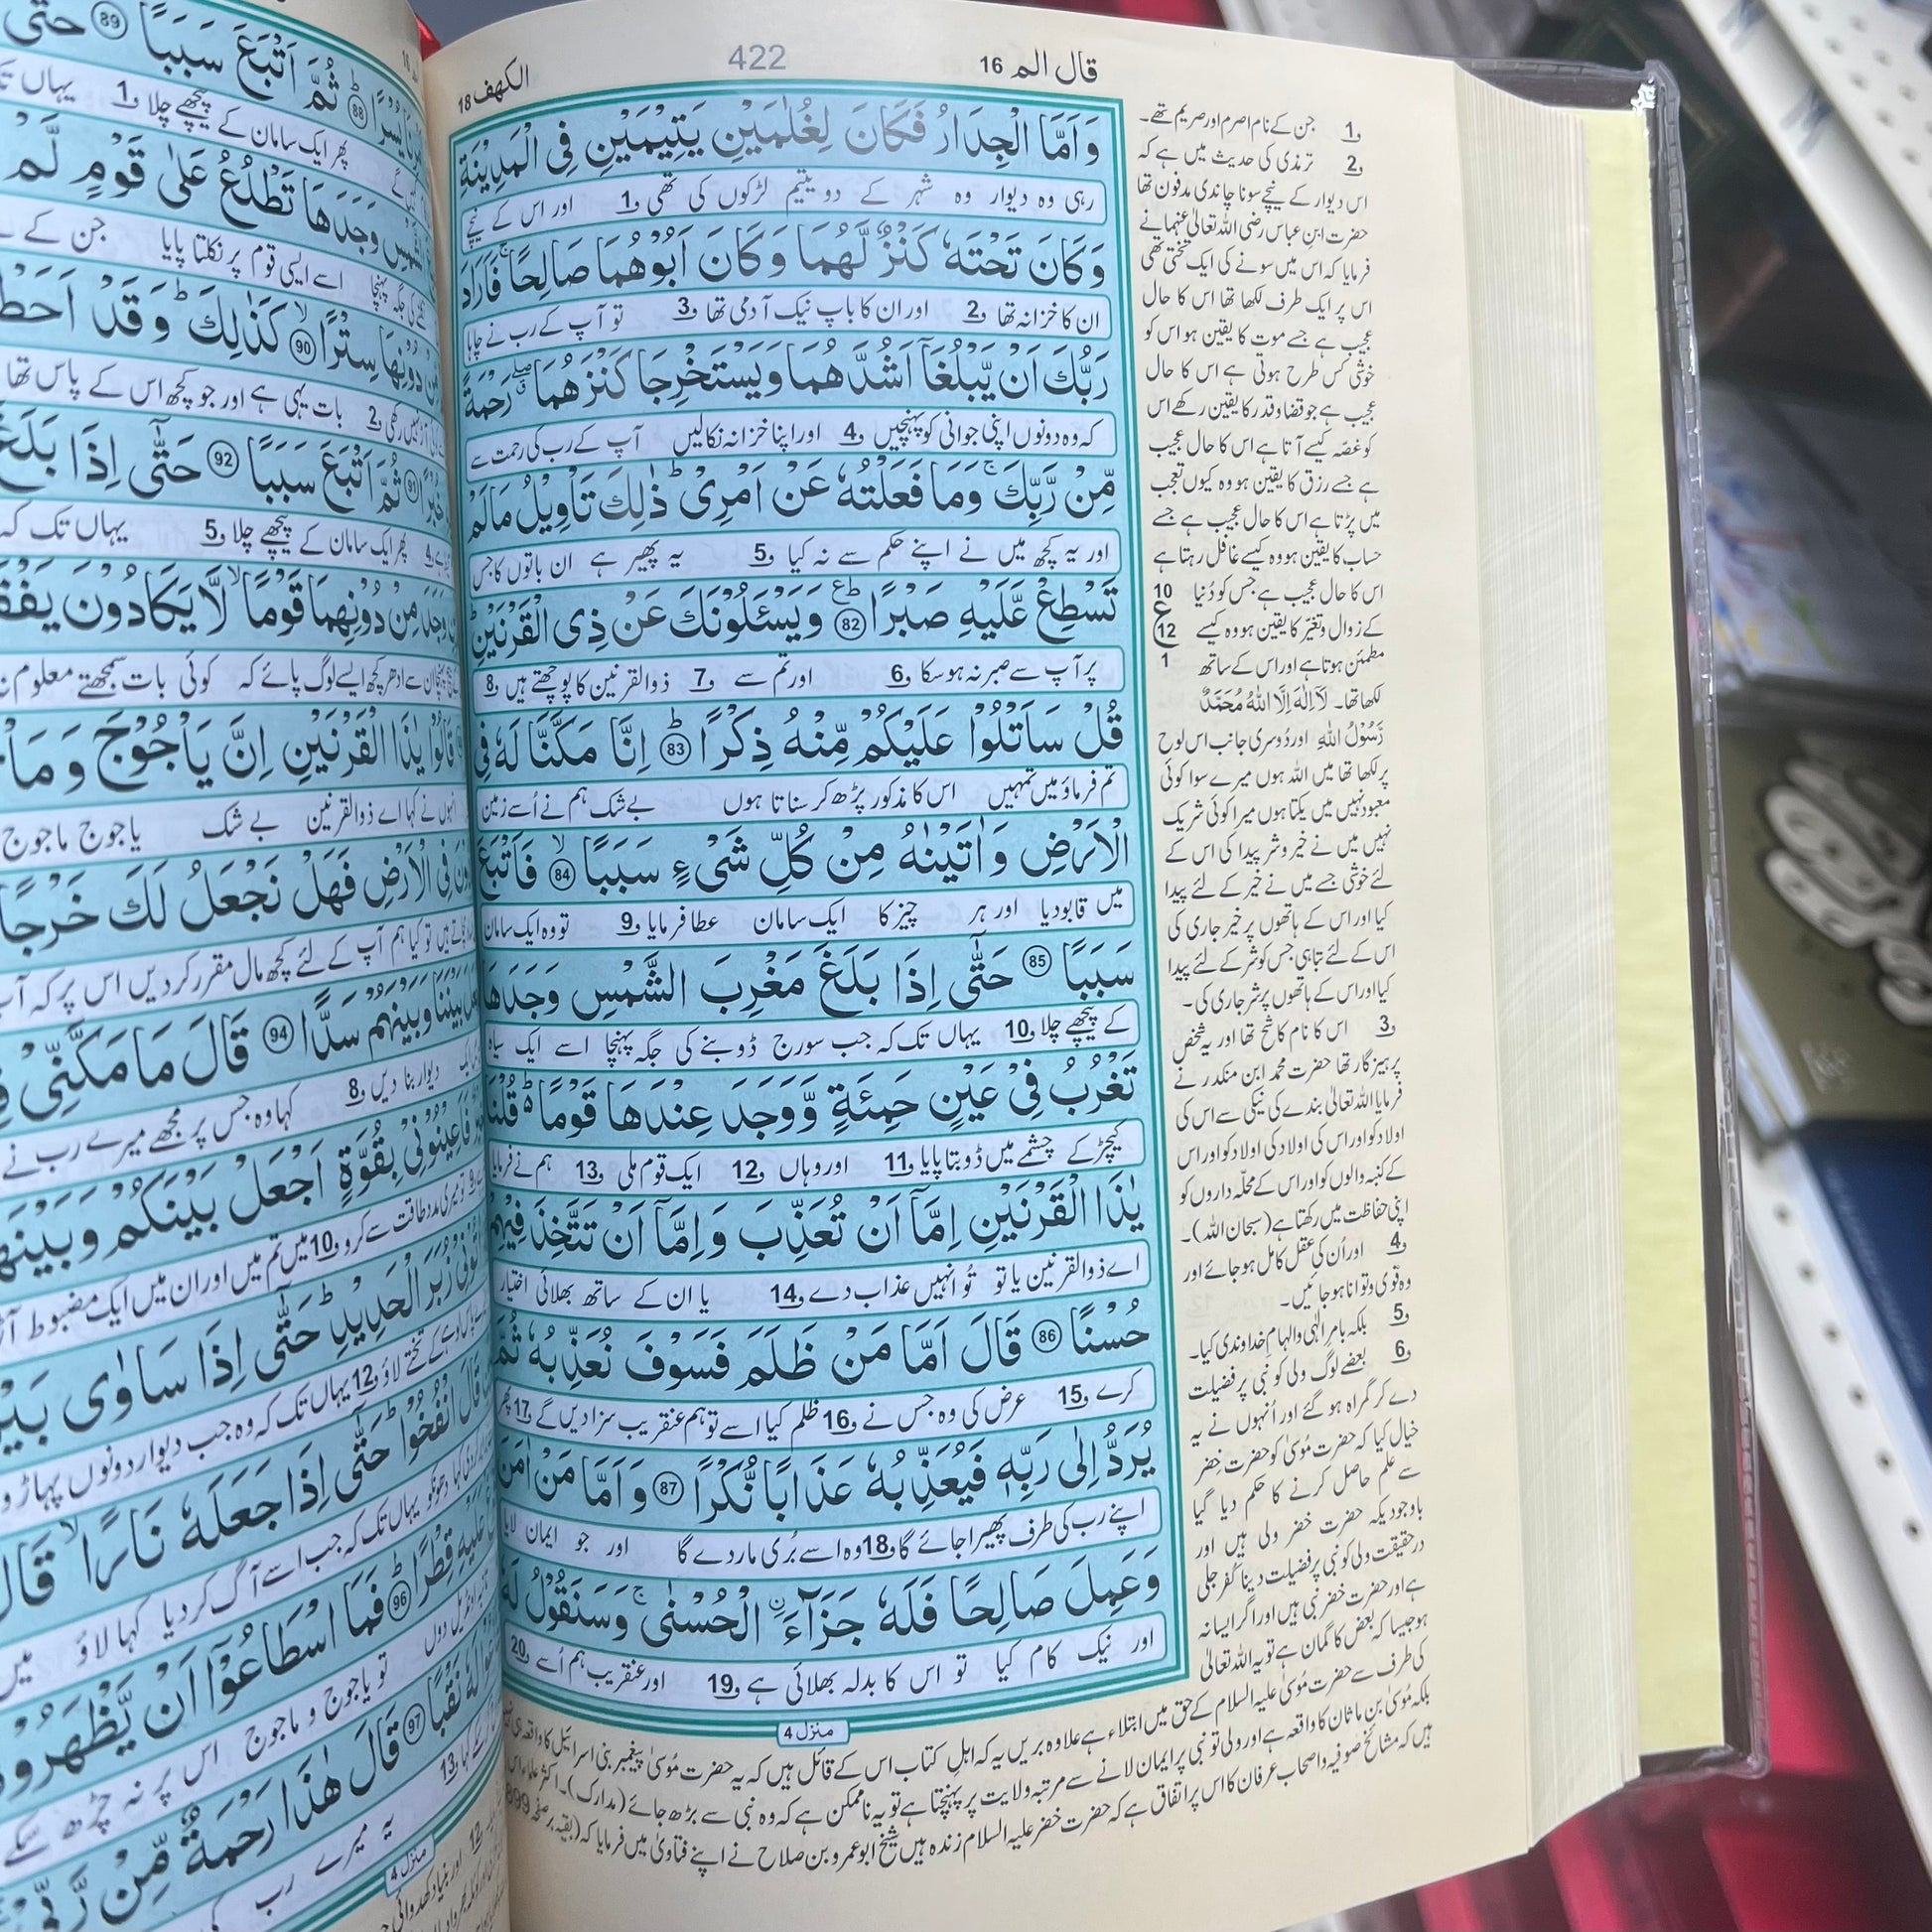 الكهف 18
422
قال الم 16
وَاَمَّا الْجِدَارُ فَكَانَ لِغُلٰمَیْنِ یَتِیْمَیْنِ فِی الْمَدِیْنَةِ
رہی وہ دیوار وہ شہر کے دو یتیم لڑکوں کی تھی و1 اور اس کے نیچے
وَكَانَ تَحْتَهٗ كَنْزٌ لَّهُمَا وَكَانَ اَبُوْهُمَا صَالِحًاۚ فَاَرَادَ
ان کا خزانہ تھا و2 اور ان کا باپ نیک آدمی تھا و3 تو آپ کے رب نے چاہا
رَبُّكَ اَنْ یَّبْلُغَاۤ اَشُدَّهُمَا وَیَسْتَخْرِجَا كَنْزَهُمَا رَحْمَةً
کہ وہ دونوں اپنی جوانی کو پہنچیں و4 اور اپنا خزانہ نکالیں آپ کے رب کی رحمت سے
مِّنْ رَّبِّكَۚ وَمَا فَعَلْتُهٗ عَنْ اَمْرِیْؕ ذٰلِكَ تَاْوِیْلُ مَالَمْ
اور یہ کچھ میں نے اپنے حکم سے نہ کیا و5 یہ پھیر ہے ان باتوں کا جس
تَسْطِعْ عَّلَیْهِ صَبْرًاؕ 82 وَیَسْـَٔلُوْنَكَ عَنْ ذِی الْقَرْنَیْنِؕ
پر آپ سے صبر نہ ہوسکا و6 اور تم سے و7 ذوالقرنین کا پوچھتے ہیں و8
قُلْ سَاَتْلُوْا عَلَیْكُمْ مِّنْهُ ذِكْرًاؕ 83 اِنَّا مَكَّنَّا لَهٗ فِی
تم فرماؤ میں تمہیں اس کا مذکور پڑھ کر سناتا ہوں بےشک ہم نے اُسے زمین
الْاَرْضِ وَاٰتَیْنٰهُ مِنْ كُلِّ شَیْءٍ سَبَبًاۙ 84 فَاَتْبَعَ
میں قابو دیا اور ہر چیز کا ایک سامان عطا فرمایا و9 تو وہ ایک سامان
سَبَبًا 85 حَتّٰۤی اِذَا بَلَغَ مَغْرِبَ الشَّمْسِ وَجَدَهَا
کے پیچھے چلا و10 یہاں تک کہ جب سورج ڈوبنے کی جگہ پہنچا اسے ایک سیاہ
تَغْرُبُ فِیْ عَیْنٍ حَمِئَةٍ وَّوَجَدَ عِنْدَهَا قَوْمًا۬ؕ قُلْنَا
کیچڑ کے چشمے میں ڈوبتا پایا و11 اور وہاں و12 ایک قوم ملی و13 ہم نے فرمایا
یٰذَا الْقَرْنَیْنِ اِمَّاۤ اَنْ تُعَذِّبَ وَاِمَّاۤ اَنْ تَتَّخِذَ فِیْهِمْ
اے ذوالقرنین یا تو تُو انہیں عذاب دے و14 یا ان کے ساتھ بھلائی اختیار
حُسْنًا 86 قَالَ اَمَّا مَنْ ظَلَمَ فَسَوْفَ نُعَذِّبُهٗ ثُمَّ
کرے و15 عرض کی وہ جس نے و16 ظلم کیا اسے تو ہم عنقریب سزا دیں گے و17 پھر
یُرَدُّ اِلٰی رَبِّهٖ فَیُعَذِّبُهٗ عَذَابًا نُّكْرًا 87 وَاَمَّا مَنْ اٰمَنَ
اپنے رب کی طرف پھیرا جائے گا و18 وہ اسے بُری مار دے گا اور جو ایمان لایا
وَعَمِلَ صَالِحًا فَلَهٗ جَزَآءَ ۨالْحُسْنٰیۚ وَسَنَقُوْلُ لَهٗ
اور نیک کام کیا تو اس کا بدلہ بھلائی ہے و19 اور عنقریب ہم اُسے و20
منزل 4
و1 جن کے نام اصرم اور صریم تھے۔
و2 ترمذی کی حدیث میں ہے کہ
اس دیوار کے نیچے سونا چاندی مدفون تھا
حضرت ابنِ عباس رضی اللہ تعالیٰ عنہما نے
فرمایا کہ اس میں سونے کی ایک تختی تھی
اس پر ایک طرف لکھا تھا اس کا حال
عجیب ہے جسے موت کا یقین ہو اس کو
خوشی کس طرح ہوتی ہے اس کا حال
عجیب ہے جو قضا و قدر کا یقین رکھے اس
کو غصّہ کیسے آتا ہے اس کا حال عجیب
ہے جسے رزق کا یقین ہو وہ کیوں تعجب
میں پڑتا ہے اس کا حال عجیب ہے جسے
حساب کا یقین ہو وہ کیسے غافل رہتا ہے
اس کا حال عجیب ہے جس کو دُنیا
کے زوال و تغیّر کا یقین ہو وہ کیسے
مطمئن ہوتا ہے اور اس کے ساتھ
لکھا تھا۔ لَاۤ اِلٰهَ اِلَّا اللّٰهُ مُحَمَّدٌ
رَّسُوْلُ اللّٰهِ اور دُوسری جانب اس لوح
پر لکھا تھا میں اللہ ہوں میرے سوا کوئی
معبود نہیں میں یکتا ہوں میرا کوئی شریک
نہیں میں نے خیر و شر پیدا کی اس کے
لئے خوشی جسے میں نے خیر کے لئے پیدا
کیا اور اس کے ہاتھوں پر خیر جاری کی
اس کے لئے تباہی جس کو شر کے لئے پیدا
کیا اور اس کے ہاتھوں پر شر جاری کی۔
و3 اس کا نام کاشح تھا اور یہ شخص
پرہیزگار تھا حضرت محمد ابن منکدر نے
فرمایا اللہ تعالیٰ بندے کی نیکی سے اس کی
اولاد کو اور اس کی اولاد کی اولاد کو اور اس
کے کنبہ والوں کو اور اس کے محلّہ داروں کو
اپنی حفاظت میں رکھتا ہے (سبحان اللہ)۔
و4 اور اُن کی عقل کامل ہو جائے اور
وہ قوی و توانا ہو جائیں۔
و5 بلکہ بامرِ الٰہی و الہامِ خداوندی کیا۔
و6 بعضے لوگ ولی کو نبی پر فضیلت
دے کر گمراہ ہو گئے اور اُنہوں نے یہ
خیال کیا کہ حضرت مُوسیٰ کو حضرت خضر
سے علم حاصل کرنے کا حکم دیا گیا
باوجودیکہ حضرت خضر ولی ہیں اور
درحقیقت ولی کو نبی پر فضیلت دینا کفرِ جلی
ہے اور حضرت خضر نبی ہیں اور اگر ایسا نہ
ہو جیسا کہ بعض کا گمان ہے تو یہ اللہ تعالیٰ
کی طرف سے حضرت مُوسیٰ علیہ السلام کے حق میں ابتلاء ہے علاوہ بریں یہ کہ اہلِ کتاب اس کے قائل ہیں کہ یہ حضرت مُوسیٰ پیغمبرِ بنی اسرائیل کا واقعہ ہی نہیں
بلکہ مُوسیٰ بن ماثان کا واقعہ ہے اور ولی تو نبی پر ایمان لانے سے مرتبہ ولایت پر پہنچتا ہے تو یہ ناممکن ہے کہ وہ نبی سے بڑھ جائے (مدارک)۔ اکثر علماء اس
ہیں کہ مشائخ صوفیہ و اصحابِ عرفان کا اس پر اتفاق ہے کہ حضرت خضر علیہ السلام زندہ ہیں شیخ ابو عمرو بن صلاح نے اپنے فتاویٰ میں فرمایا کہ (بقیہ بر صفحہ 899
10
ع
12
1
ثُمَّ اَتْبَعَ سَبَبًا 89 حَتّٰۤی
پھر ایک سامان کے پیچھے چلا و1 یہاں
وَجَدَهَا تَطْلُعُ عَلٰی قَوْمٍ لَّمْ
اسے ایسی قوم پر نکلتا پایا جن کے
دُوْنِهَا سِتْرًاۙ 90 كَذٰلِكَؕ وَقَدْ اَحَطْ
و2 بات یہی ہے اور جو کچھ اس کے پاس تھا
91 ثُمَّ اَتْبَعَ سَبَبًا 92 حَتّٰۤی اِذَا بَلَغَ
و4 پھر ایک سامان کے پیچھے چلا و5 یہاں تک کہ
مِنْ دُوْنِهِمَا قَوْمًاۙ لَّا یَكَادُوْنَ یَفْقَ
ان سے ادھر کچھ ایسے لوگ پائے کہ کوئی بات سمجھتے معلوم نہ
قَالُوْا یٰذَا الْقَرْنَیْنِ اِنَّ یَاْجُوْجَ وَمَاْ
انہوں نے کہا اے ذوالقرنین بےشک یاجوج ماجوج
فِی الْاَرْضِ فَهَلْ نَجْعَلُ لَكَ خَرْجًا
تو کیا ہم آپ کے لئے کچھ مال مقرر کردیں اس پر کہ آپ
بَیْنَنَا وَبَیْنَهُمْ سَدًّا 94 قَالَ مَا مَكَّنِّیْ
دیوار بنا دیں و8 کہا وہ جس پر مجھے میرے رب نے
فَاَعِیْنُوْنِیْ بِقُوَّةٍ اَجْعَلْ بَیْنَكُمْ وَبَیْنَهُ
میری مدد طاقت سے کرو و10 میں تم میں اور ان میں ایک مضبوط آڑ
زُبَرَ الْحَدِیْدِؕ حَتّٰۤی اِذَا سَاوٰی بَیْ
کے تختے لاؤ و12 یہاں تک کہ وہ جب دیوار دونوں پہاڑو
قَالَ انْفُخُوْاؕ حَتّٰۤی اِذَا جَعَلَهٗ نَارًاۙ قَالَ
کہا دھونکو یہاں تک کہ جب اسے آگ کر دیا کہا لاؤ میں
عَلَیْهِ قِطْرًاؕ 96 فَمَا اسْطَاعُوْۤا اَنْ یَّظْهَرُوْهُ
تو یاجوج و ماجوج اس پر نہ چڑھ سکے
نَقْبًا 97 قَالَ هٰذَا رَحْمَةٌ مِّنْ رَّبِّیْ
و13 یہ میرے رب کی
منزل 4